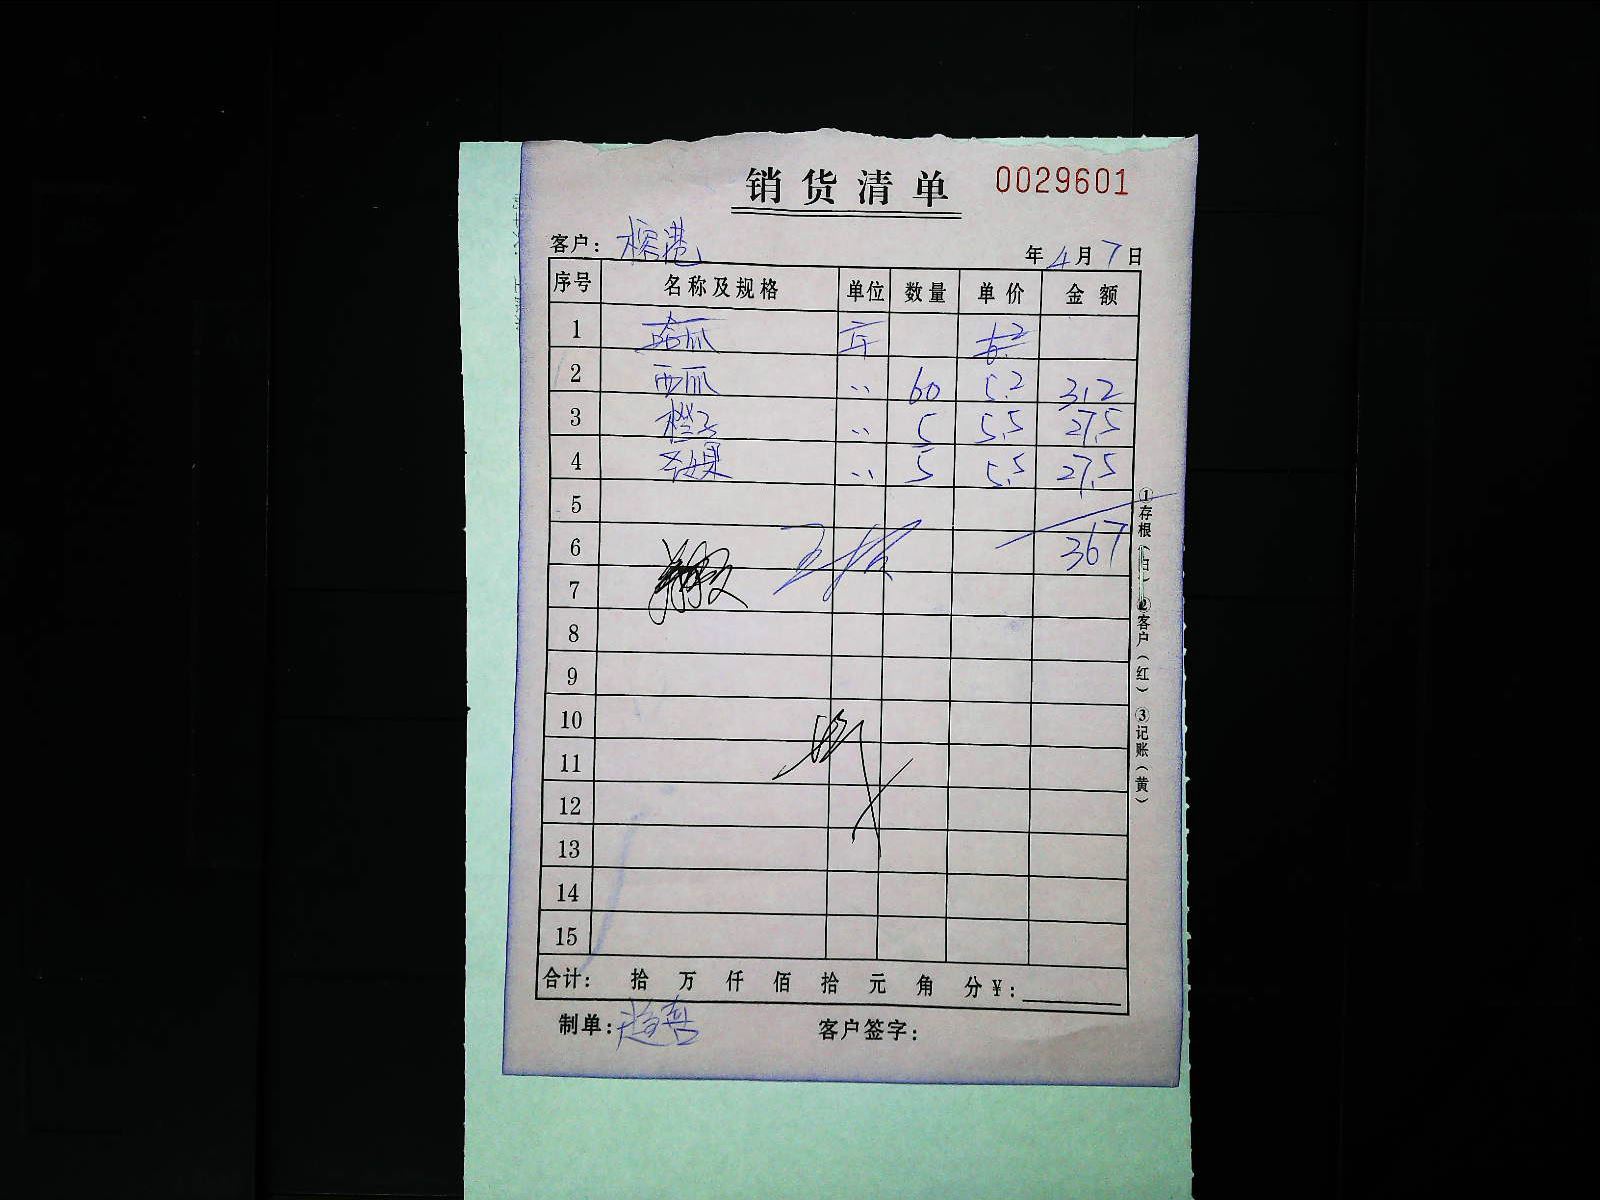 销货清单 0029601
客户： 年4月7日
序号 名称及规格 单位 数量 单价 金额
1 哈瓜 斤 6.2
2 西瓜 〃 60 5.2 312
3 橙子 〃 5 5.5 27.5
4 圣女果 〃 5 5.5 27.5
5
6 367
7
8
9
10
11
12
13
14
15
合计： 拾 万 仟 佰 拾 元 角 分 ¥：
制单： 客户签字：
①存根（白）②客户（红）③记账（黄）